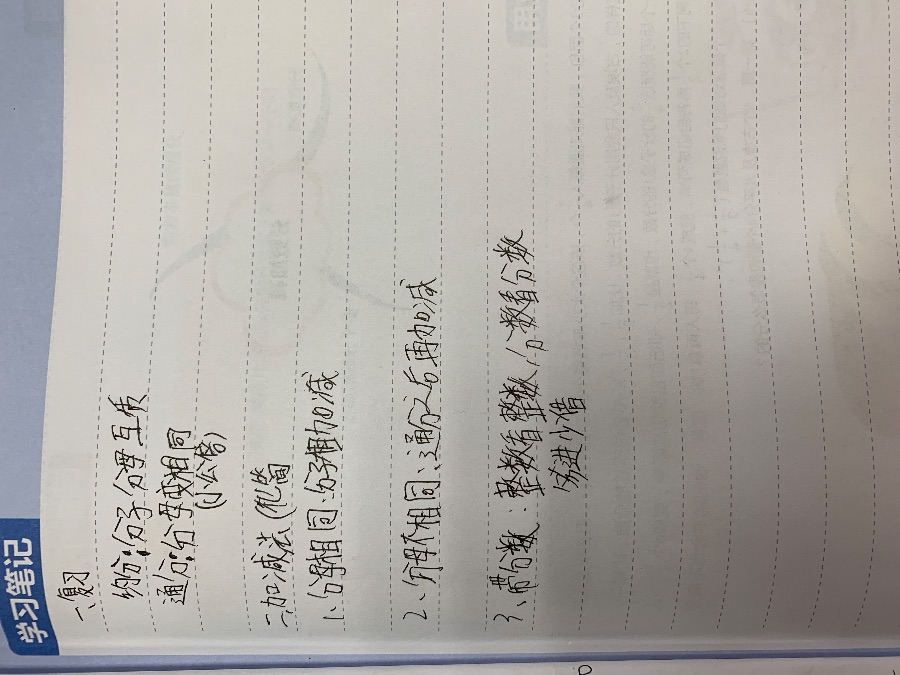 学习笔记
一、复习
约分:分子分母互质
通分:分母要相同
(小公倍)
二、加减法(化简
1、分母相同:分子相加减
2、分母不相同:通分之后再加减
3、带分数:整数看整数,分数看分数
多进少借